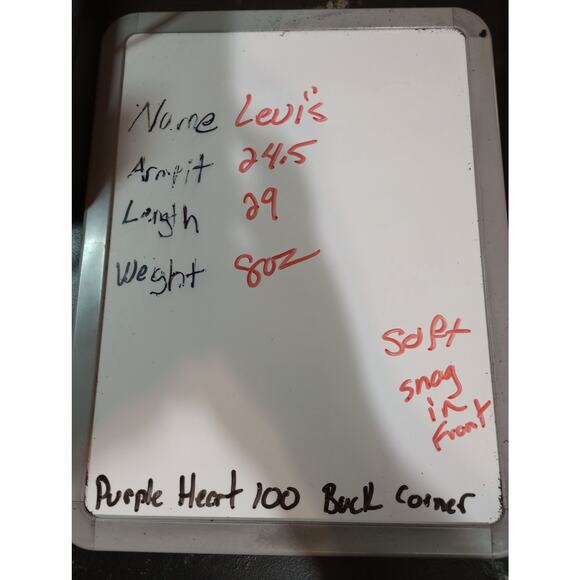 Name Levi's
Armpit 24.5
Length 29
Weight 8oz
Soft
snag
in
Front
Purple Heart 100 Back Corner